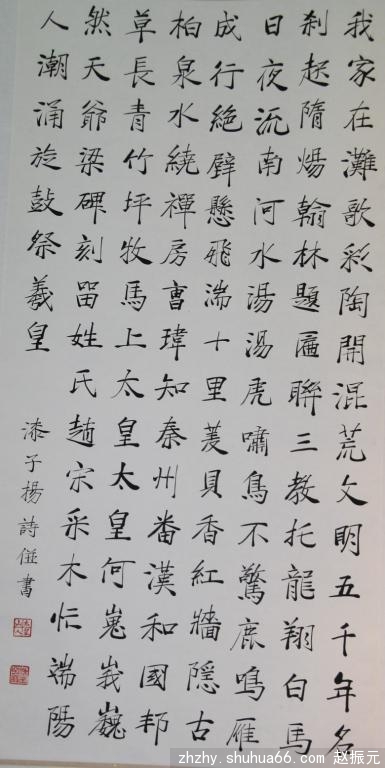 我家在灘歌彩陶開混荒文明五千年名
刹起隋煬翰林題匾聯三教托龍翔白馬
日夜流南河水湯湯虎嘯鳥不驚鹿鳴雁
成行絕壁懸飛湍十里貝香紅牆隱古
柏泉水繞禪房曹瑋知秦州番漢和國邦
草長青竹坪牧馬上太皇太皇何嵬峩巍
然天爺梁碑刻留姓氏趙宋采木忙端陽
人潮涌旋鼓祭羲皇
漆子揚詩書
zhzhy.shuhua66.com 赵振元